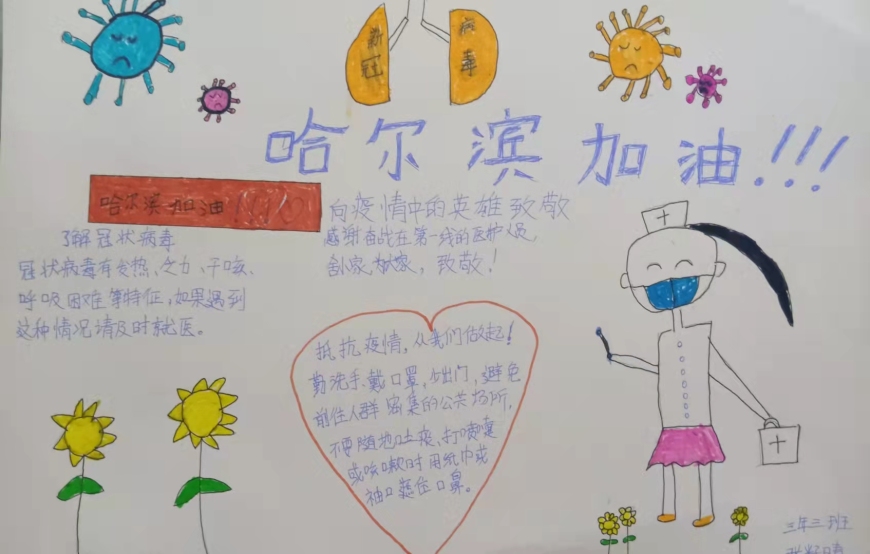 新冠
病毒
哈尔滨加油!!!
哈尔滨加油!!!!
向疫情中的英雄致敬
感谢奋战在第一线的医护人员,
舍小家,为大家,致敬!
了解冠状病毒
冠状病毒有发热、乏力、干咳、
呼吸困难等特征,如果遇到
这种情况请及时就医。
抵抗疫情,从我们做起!
勤洗手、戴口罩,少出门,避免
前往人群密集的公共场所,
不要随地吐痰、打喷嚏
或咳嗽时用纸巾或
袖口遮住口鼻。
三年三班